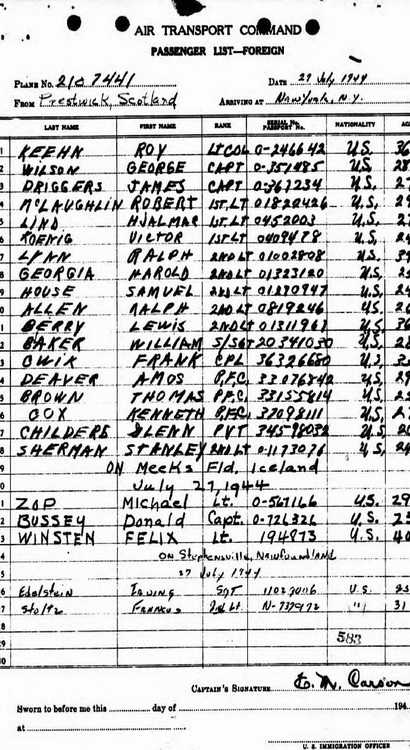 AIR TRANSPORT COMMAND
PASSENGER LIST—FOREIGN
PLANE No. 2107441 DATE 27 July 1944
FROM Prestwick, Scotland ARRIVING AT New York, N.Y.
LAST NAME FIRST NAME RANK SERIAL No. PASSPORT No. NATIONALITY
1 KEEHN ROY LT COL 0-246642 U.S. 36
2 WILSON GEORGE CAPT 0-351485 U.S. 28
3 DRIGGERS JAMES CAPT 0-367234 U.S.
4 McLAUGHLIN ROBERT 1ST.LT 01822426 U.S.
5 LIND HJALMAR 1ST.LT 0452003 U.S.
6 KOENIG VICTOR 1ST LT 0409478 U.S.
7 LYAN RALPH 2ND LT 01002808 U.S.
8 GEORGIA HAROLD 2ND LT 01323120 U.S.
9 HOUSE SAMUEL 2ND LT 01290947 U.S.
0 ALLEN RALPH 2ND LT 0819246 U.S.
1 BERRY LEWIS 2ND LT 01311961 U.S. 36
2 BAKER WILLIAM S/SGT 20341030 U.S. 28
3 CWIK FRANK CPL 36326680 U.S.
4 DEAVER AMOS P.F.C. 33076842 U.S. 29
5 BROWN THOMAS P.F.C. 33155814 U.S.
6 COX KENNETH P.F.C. 32098111 U.S.
7 CHILDERS GLENN PVT 34598032 U.S.
8 SHERMAN STANLEY 2ND LT 0-1173076 U.S.
9 ON Meeks Fld, Iceland
0 July 27, 1944
1 ZOP Michael Lt. 0-567166 U.S. 29
2 BUSSEY Donald Capt. 0-726326 U.S.
3 WINSTEN FELIX Lt. 194973 U.S. 40
4 ON Stephensville, Newfoundland
5 27 July 1944
6 Edelstein Irving SGT 11027016 U.S.
7 Stoltz 2d Lt N-737972 " 31
8
29 583
30
CAPTAIN'S SIGNATURE E. M. Carson
Sworn to before me this day of 194
at
U. S. IMMIGRATION OFFICER